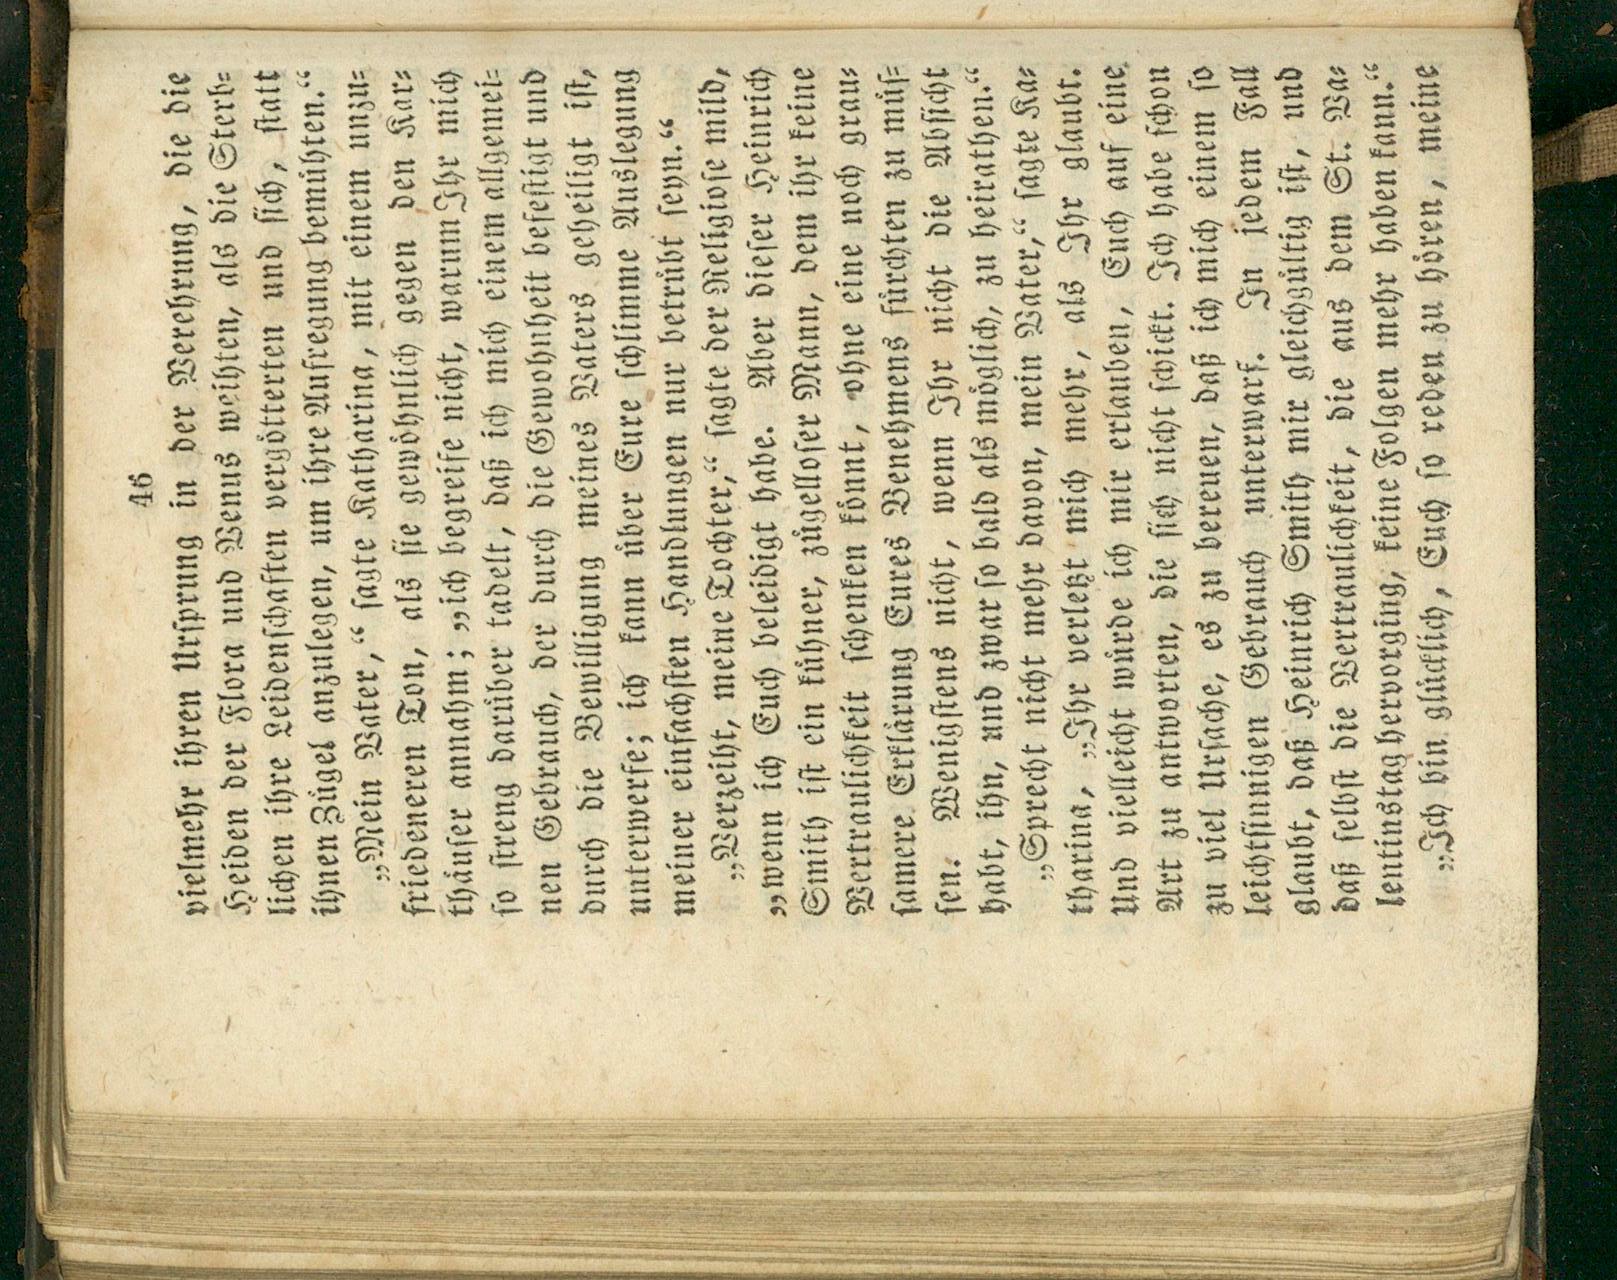 46
vielmehr ihren Ursprung in der Verehrung, die die
Heiden der Flora und Venus weihten, als die Sterb=
lichen ihre Leidenschaften vergötterten und sich, statt
ihnen Zügel anzulegen, um ihre Aufregung bemühten.“
„Mein Vater,“ sagte Katharina, mit einem unzu=
friedeneren Ton, als sie gewöhnlich gegen den Kar=
thäuser annahm; „ich begreife nicht, warum Ihr mich
so streng darüber tadelt, daß ich mich einem allgemei=
nen Gebrauch, der durch die Gewohnheit befestigt und
durch die Bewilligung meines Vaters geheiligt ist,
unterwerfe; ich kann über Eure schlimme Auslegung
meiner einfachsten Handlungen nur betrübt seyn.“
„Verzeiht, meine Tochter,“ sagte der Religiose mild,
„wenn ich Euch beleidigt habe. Aber dieser Heinrich
Smith ist ein kühner, zügelloser Mann, dem ihr keine
Vertraulichkeit schenken könnt, ohne eine noch grau=
samere Erklärung Eures Benehmens fürchten zu müs=
sen. Wenigstens nicht, wenn Ihr nicht die Absicht
habt, ihn, und zwar so bald als möglich, zu heirathen.“
„Sprecht nicht mehr davon, mein Vater,“ sagte Ka=
tharina, „Ihr verletzt mich mehr, als Ihr glaubt.
Und vielleicht würde ich mir erlauben, Euch auf eine
Art zu antworten, die sich nicht schickt. Ich habe schon
zu viel Ursache, es zu bereuen, daß ich mich einem so
leichtsinnigen Gebrauch unterwarf. In jedem Fall
glaubt, daß Heinrich Smith mir gleichgültig ist, und
daß selbst die Vertraulichkeit, die aus dem St. Va=
lentinstag hervorging, keine Folgen mehr haben kann.“
„Ich bin glücklich, Euch so reden zu hören, meine